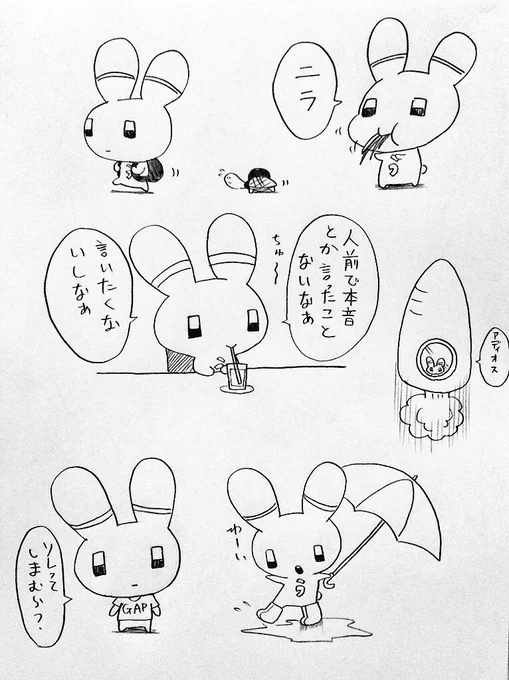 ニラ
旬
人前で本音
とか言ったこと
ないなぁ
言いたくな
いしなぁ
ちゅ〜
アディオス
ソレって
しまむら?
GAP
わーい
旬